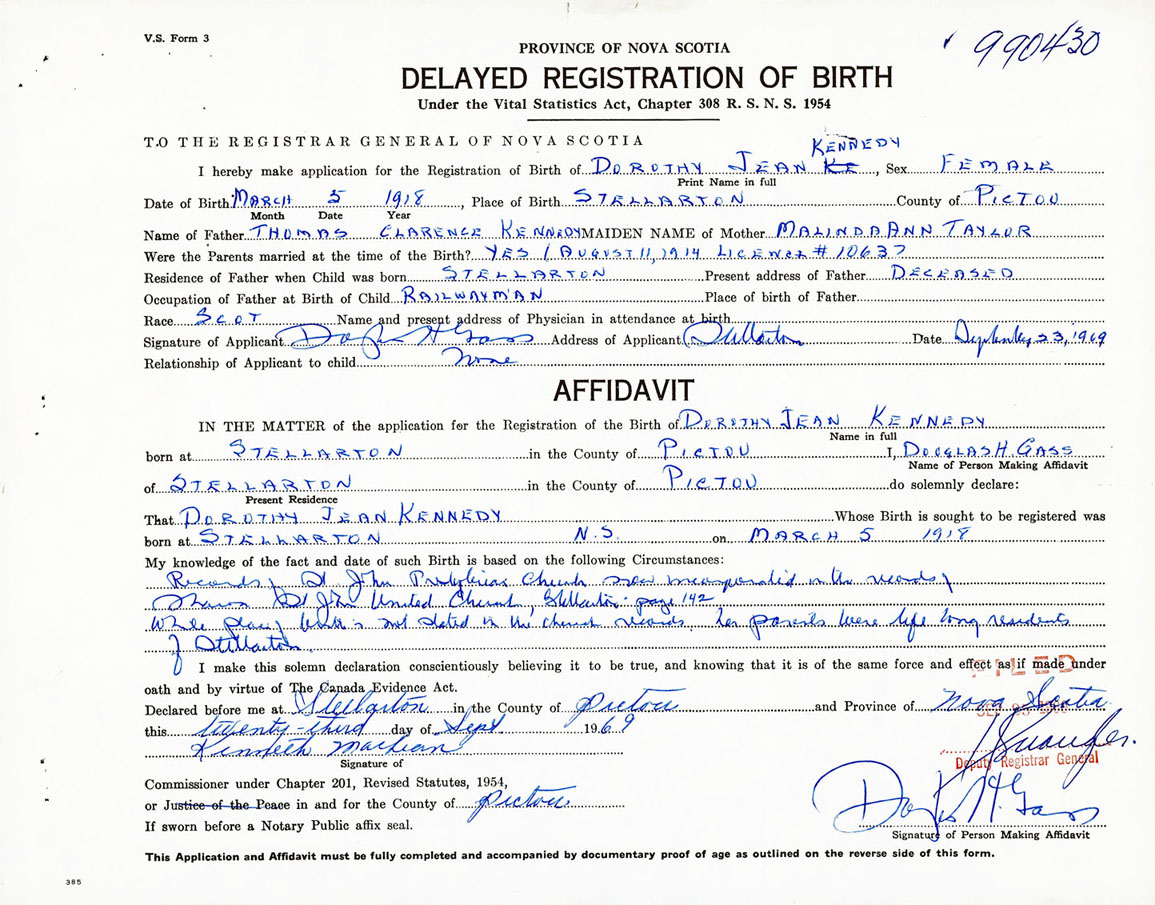 V.S. Form 3
990430
PROVINCE OF NOVA SCOTIA
DELAYED REGISTRATION OF BIRTH
Under the Vital Statistics Act, Chapter 308 R. S. N. S. 1954
TO THE REGISTRAR GENERAL OF NOVA SCOTIA
KENNEDY
I hereby make application for the Registration of Birth of DOROTHY JEAN KE, Sex FEMALE
Print Name in full
Date of Birth MARCH 5 1918, Place of Birth STELLARTON County of PICTOU
Month Date Year
Name of Father THOMAS CLARENCE KENNEDY MAIDEN NAME of Mother MALINDA ANN TAYLOR
Were the Parents married at the time of the Birth? YES / AUGUST 11, 1914 LICENCE # 10637
Residence of Father when Child was born STELLARTON Present address of Father DECEASED
Occupation of Father at Birth of Child RAILWAYMAN Place of birth of Father
Race SCOT Name and present address of Physician in attendance at birth
Signature of Applicant Douglas H Gass Address of Applicant Stellarton Date September 23, 1969
Relationship of Applicant to child None
AFFIDAVIT
IN THE MATTER of the application for the Registration of the Birth of DOROTHY JEAN KENNEDY
Name in full
born at STELLARTON in the County of PICTOU I, DOUGLAS H. GASS
Name of Person Making Affidavit
of STELLARTON in the County of PICTOU do solemnly declare:
Present Residence
That DOROTHY JEAN KENNEDY Whose Birth is sought to be registered was
born at STELLARTON N.S. on MARCH 5 1918
My knowledge of the fact and date of such Birth is based on the following Circumstances:
Records of St John Presbyterian Church now incorporated in the records of
Sharon St John United Church, Stellarton - page 142
While place of birth is not stated in the church records, her parents were life long residents
of Stellarton.
I make this solemn declaration conscientiously believing it to be true, and knowing that it is of the same force and effect as if made under
FILED
oath and by virtue of The Canada Evidence Act.
Declared before me at Stellarton in the County of Pictou and Province of Nova Scotia
this twenty-third day of Sept 1969
Kenneth MacLean
Signature of
Deputy Registrar General
Commissioner under Chapter 201, Revised Statutes, 1954,
or Justice of the Peace in and for the County of Pictou
Douglas H. Gass
If sworn before a Notary Public affix seal.
Signature of Person Making Affidavit
This Application and Affidavit must be fully completed and accompanied by documentary proof of age as outlined on the reverse side of this form.
385